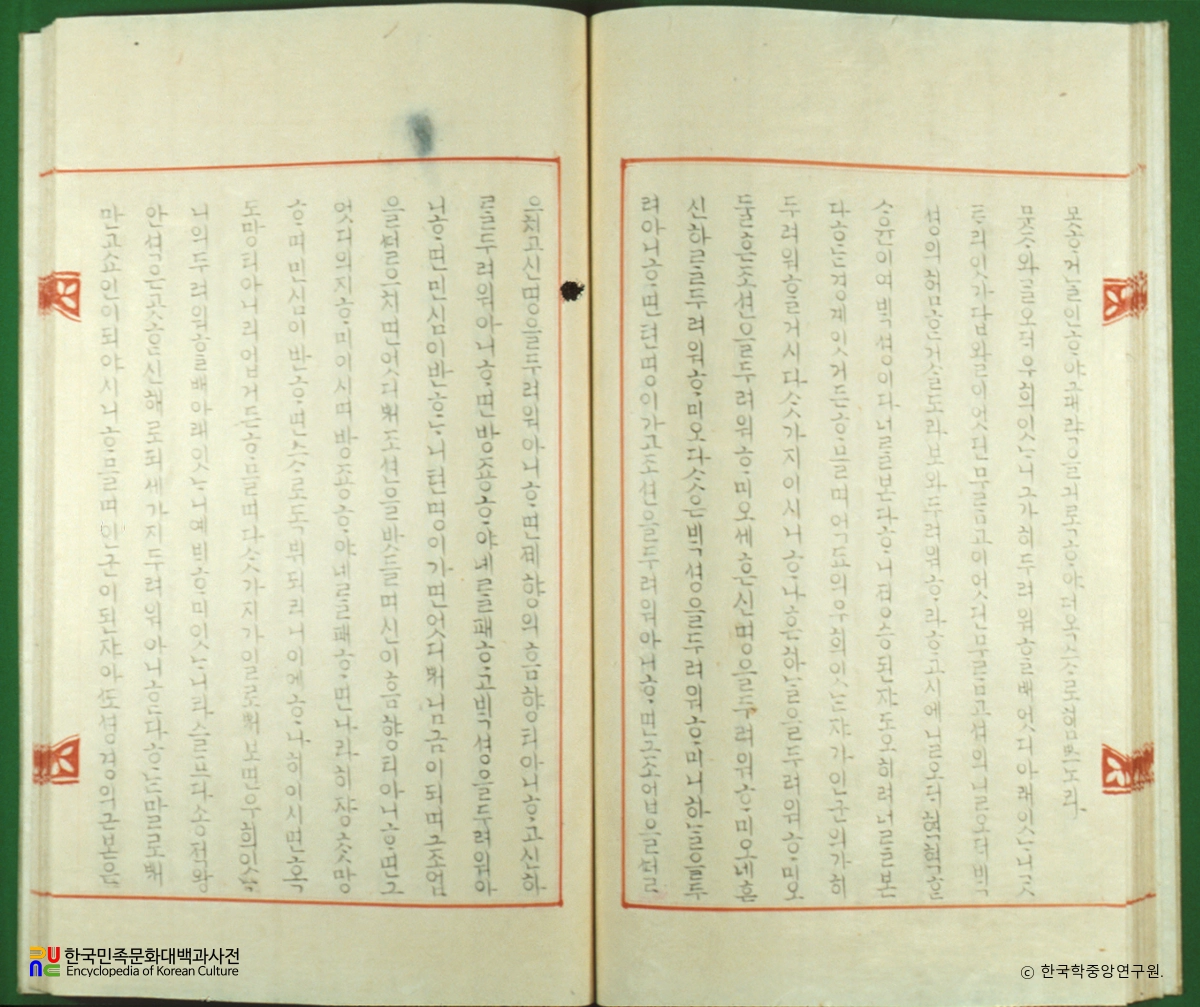 모 거늘인ᄒᆞ야대략을긔록ᄒᆞ야더옥스ᄉᆞ로힘쓰노라
뭇ᄌᆞ와ᄀᆞᆯ오ᄃᆡ우희잇ᄂᆞ니가히두려워ᄒᆞᆯ배엇디아래잇ᄂᆞ니ᄀᆞᆺ
ᄐᆞ리잇가답왈이엇던무ᄅᆞᆷ고이엇던무ᄅᆞᆷ고셔의니ᄅᆞ오ᄃᆡᄇᆡᆨ
셩의험ᄒᆞᆫ거ᄉᆞᆯ도라보와두려워ᄒᆞ라ᄒᆞ고시에닐오ᄃᆡ혁혁ᄒᆞᆫ
ᄉᆞ윤이여ᄇᆡᆨ셩이다너ᄅᆞᆯ본다ᄒᆞ니졍승된쟈도오히려너ᄅᆞᆯ본
다ᄒᆞᄂᆞᆫ경계잇거든ᄒᆞ믈며억됴의우희잇ᄂᆞᆫ쟈가인군의가히
두려워ᄒᆞᆯ거시다ᄉᆞᆺ가지이시니ᄒᆞ나흔하ᄂᆞᆯ을두려워ᄒᆞ미오
둘흔조션을두려워ᄒᆞ미오세흔신명을두려워ᄒᆞ미오네흔
신하ᄅᆞᆯ두려워ᄒᆞ미오다ᄉᆞᆺ은ᄇᆡᆨ셩을두려워ᄒᆞ미니하ᄂᆞᆯ을두
려아니ᄒᆞ면텬명이가고조션을두려워아니ᄒᆞ면그조업을ᄯᅥᆯ
으치고신명을두려워아니ᄒᆞ면졔향의흠향티아니ᄒᆞ고신하
ᄅᆞᆯ두려워아니ᄒᆞ면방죵ᄒᆞ야네ᄅᆞᆯ패ᄒᆞ고ᄇᆡᆨ셩을두려워아
니ᄒᆞ면민심이반ᄒᆞᄂᆞ니텬명이가면엇디ᄡᅥ님금이되며그조업
을ᄯᅥᆯ으치면엇디ᄡᅥ조션을밧들며신이흠향티아니ᄒᆞ면그
엇디의지ᄒᆞ미이시며방죵ᄒᆞ야네ᄅᆞᆯ패ᄒᆞ면나라히쟝ᄎᆞᆺ망
ᄒᆞ며민심이반ᄒᆞ면스ᄉᆞ로독뷔되리니이에ᄒᆞ나히이시면혹
도망티아니리업거든ᄒᆞ믈며다ᄉᆞᆺ가지가일로ᄡᅥ보면우희잇ᄂᆞᆫ
니의두려워ᄒᆞᆯ배아래잇ᄂᆞ니예ᄇᆡᆨᄒᆞ미잇ᄂᆞ니라슬프다송적왕
안셕은곳ᄒᆞᆫ신해로되세가지두려워아니ᄒᆞᆫ다ᄒᆞᄂᆞᆫ말로ᄡᅥ
만고쇼인이되야시니ᄒᆞ믈며인군이된쟈아ᄯᅩ셩경의근본을
한국민족문화대백과사전
Encyclopedia of Korean Culture
© 한국학중앙연구원.